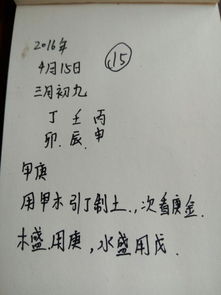 2016年
15
4月15日
三月初九
丁壬丙
卯.辰.申
甲庚
用甲木引丁制土.,次看庚金.
木盛.用庚,水盛用戊.